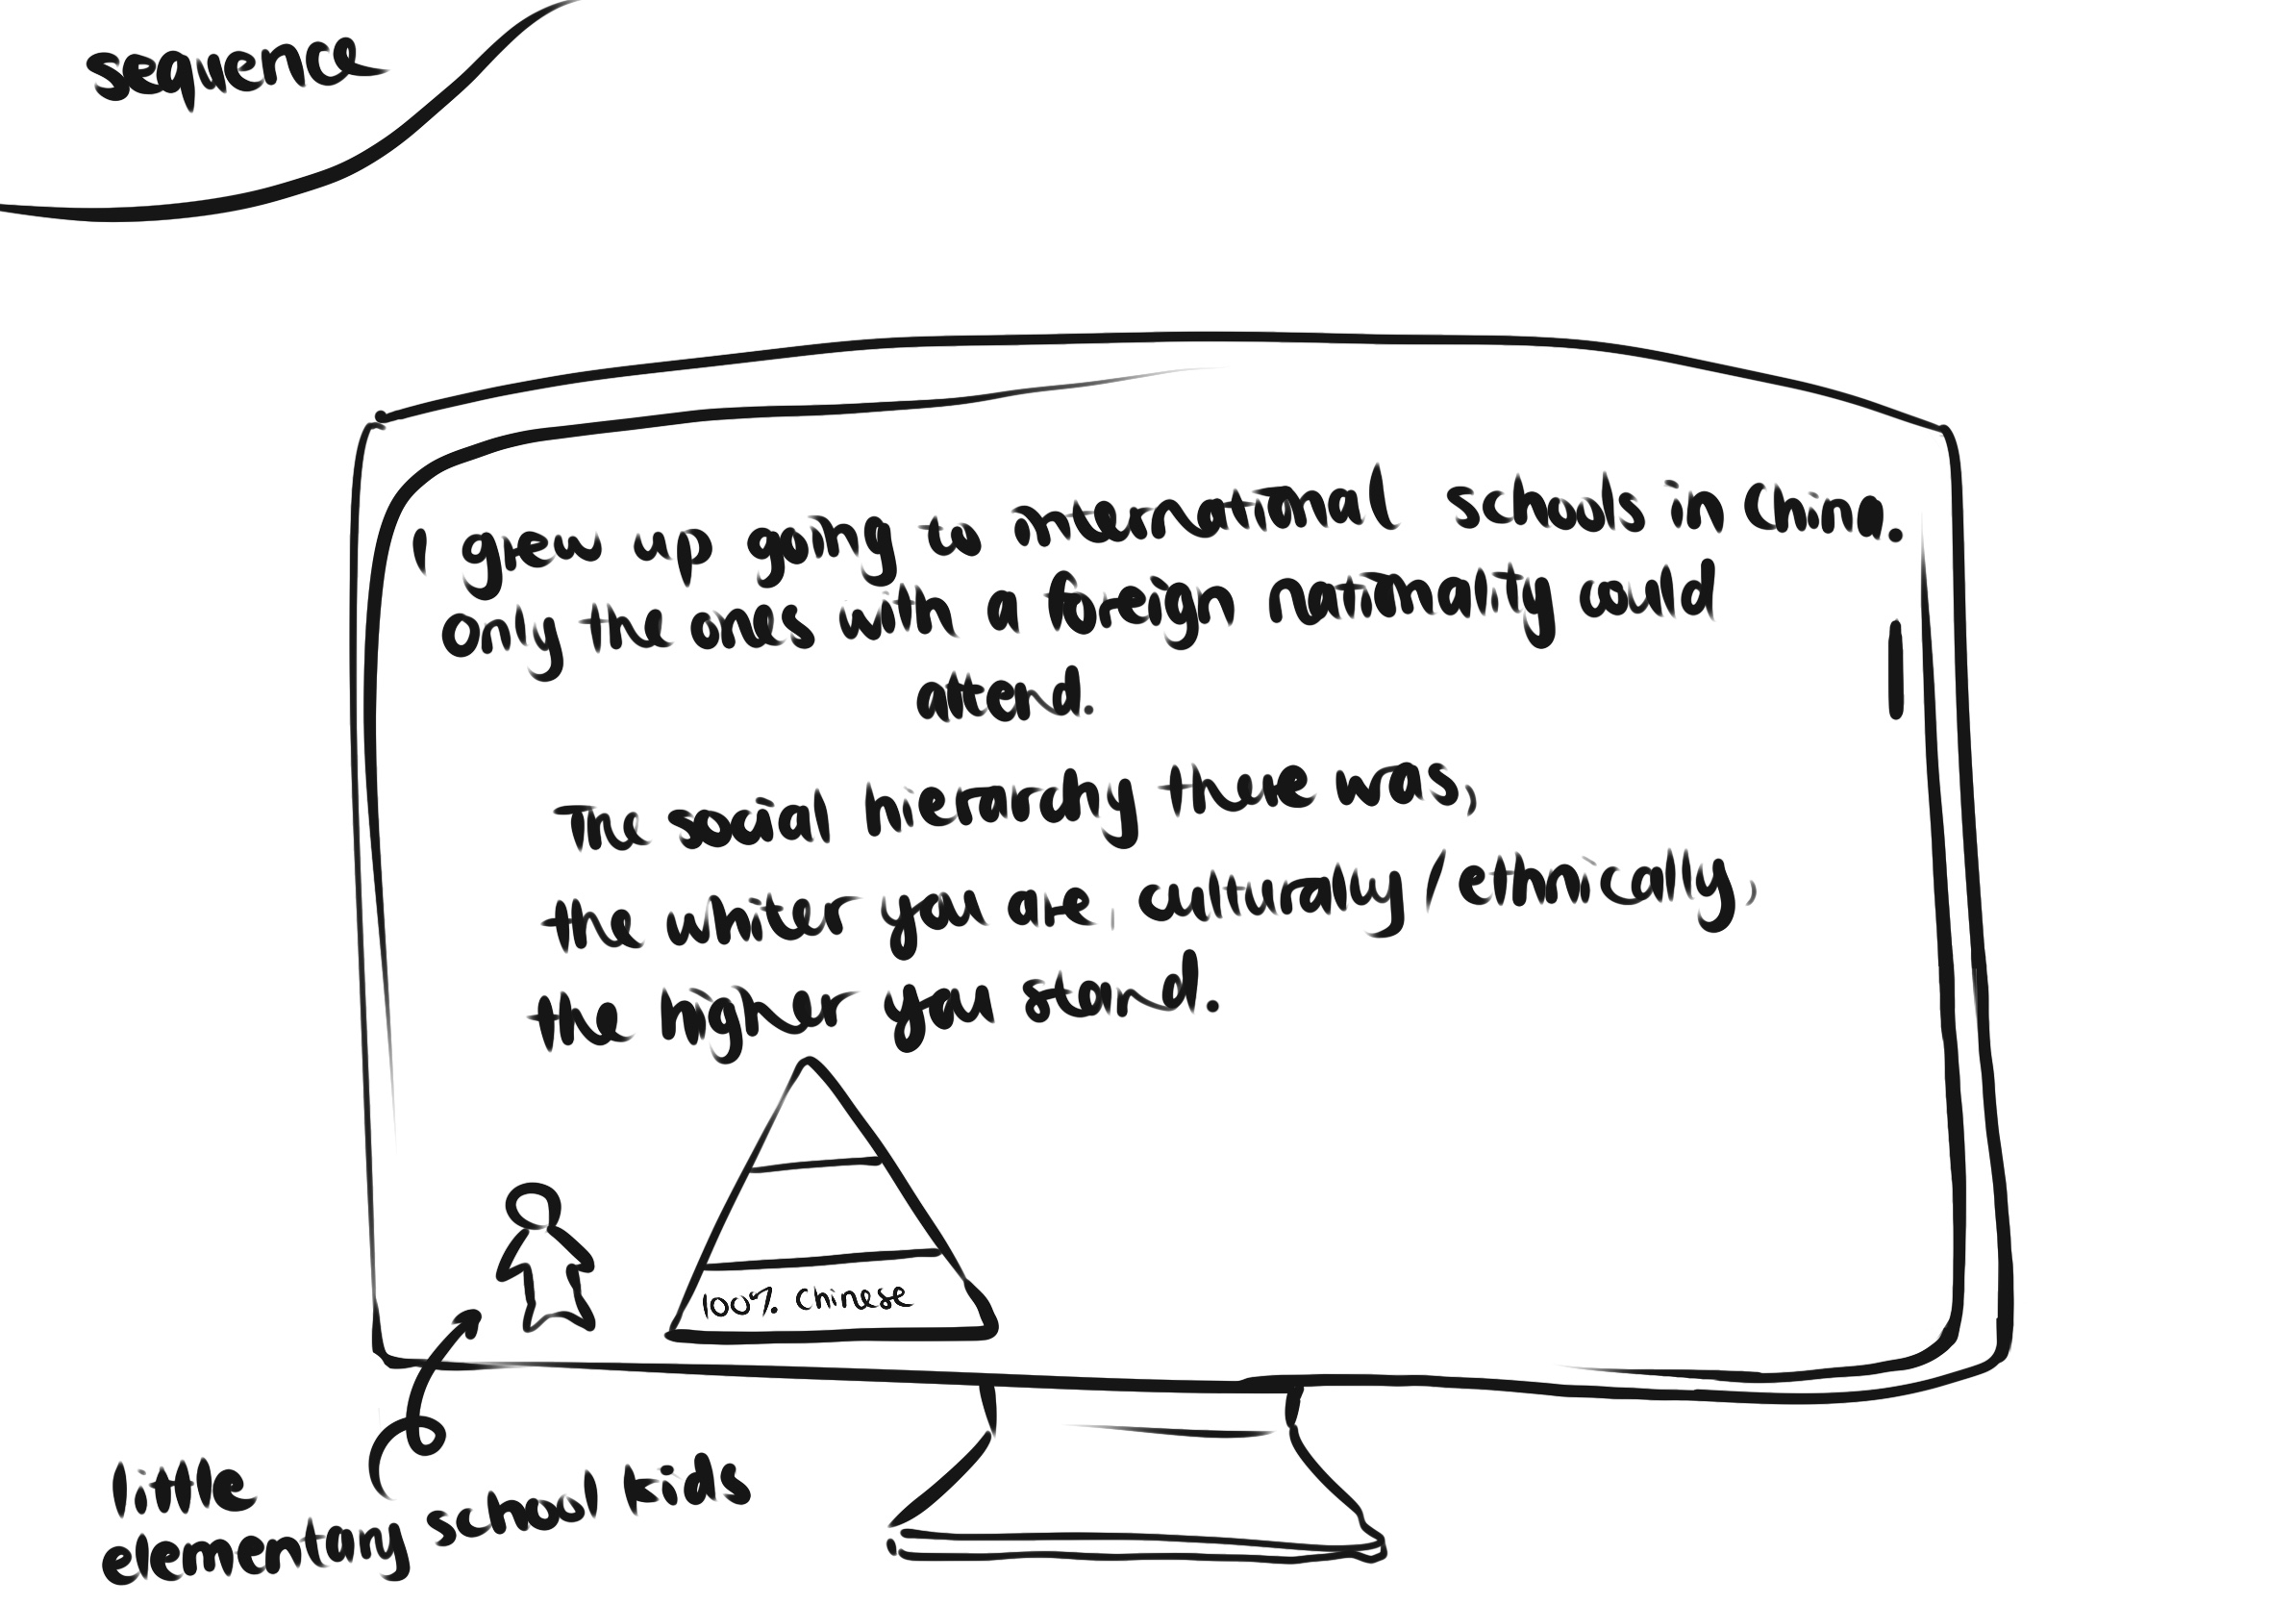 sequence
I grew up going to international schools in China.
Only the ones with a foreign nationality could
attend.
The social hierarchy there was,
the whiter you are, culturally/ethnically,
the higher you stand.
100% Chinese
little
elementary school kids